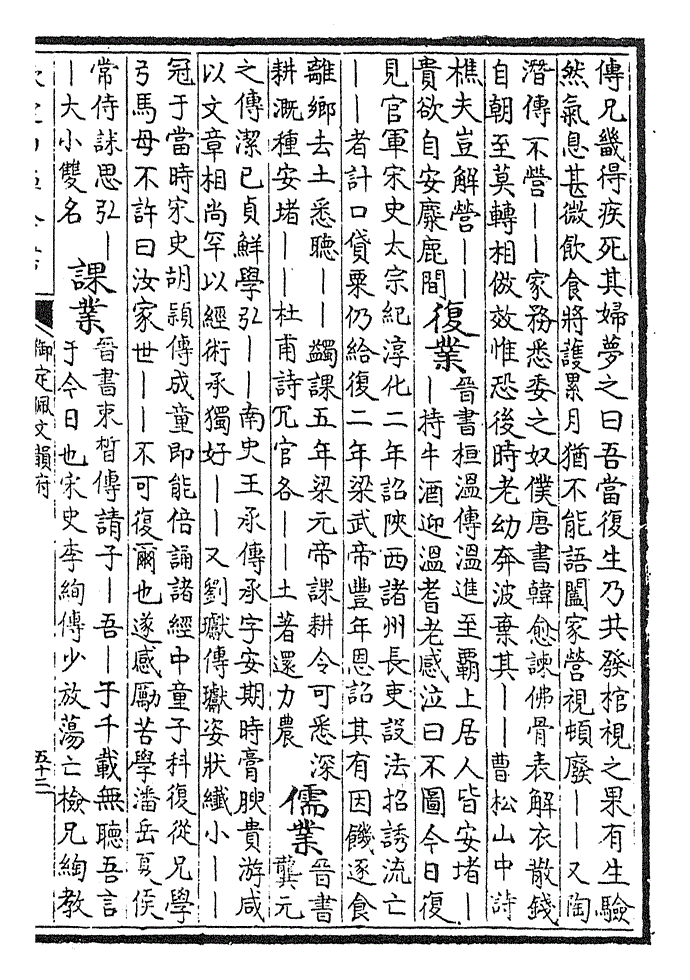 傳兄畿得疾死其婦夢之曰吾當復生乃共發棺視之果有生驗
然氣息甚微飲食將護累月猶不能語闔家營視頓廢——又陶
潛傳不營——家務悉委之奴僕唐書韓愈諫佛骨表解衣散錢
自朝至莫轉相倣效惟恐後時老幼奔波棄其——曹松山中詩
樵夫豈解營——
貴欲自安麋鹿間
復業
晉書桓溫傳溫進至霸上居人皆安堵—
—持牛酒迎溫耆老感泣曰不圖今日復
見官軍宋史太宗紀淳化二年詔陜西諸州長吏設法招誘流亡
——者計口貸粟仍給復二年梁武帝豐年恩詔其有因饑逐食
離鄉去土悉聽——蠲課五年梁元帝課耕令可悉深
耕溉種安堵——杜甫詩冗官各——土著還力農
儒業
晉書
龔元
之傳潔已貞鮮學弘——南史王承傳承字安期時膏腴貴游咸
以文章相尚罕以經術承獨好——又劉瓛傳瓛姿狀纖小——
冠于當時宋史胡穎傳成童即能倍誦諸經中童子科復從兄學
弓馬母不許曰汝家世——不可復爾也遂感勵苦學潘岳夏侯
常侍誄思弘—
—大小雙名
課業
晉書束晳傳請子—吾—于千載無聽吾言
于今日也宋史李絢傳少放蕩亡檢兄綯教
御定佩文韻府
五十三